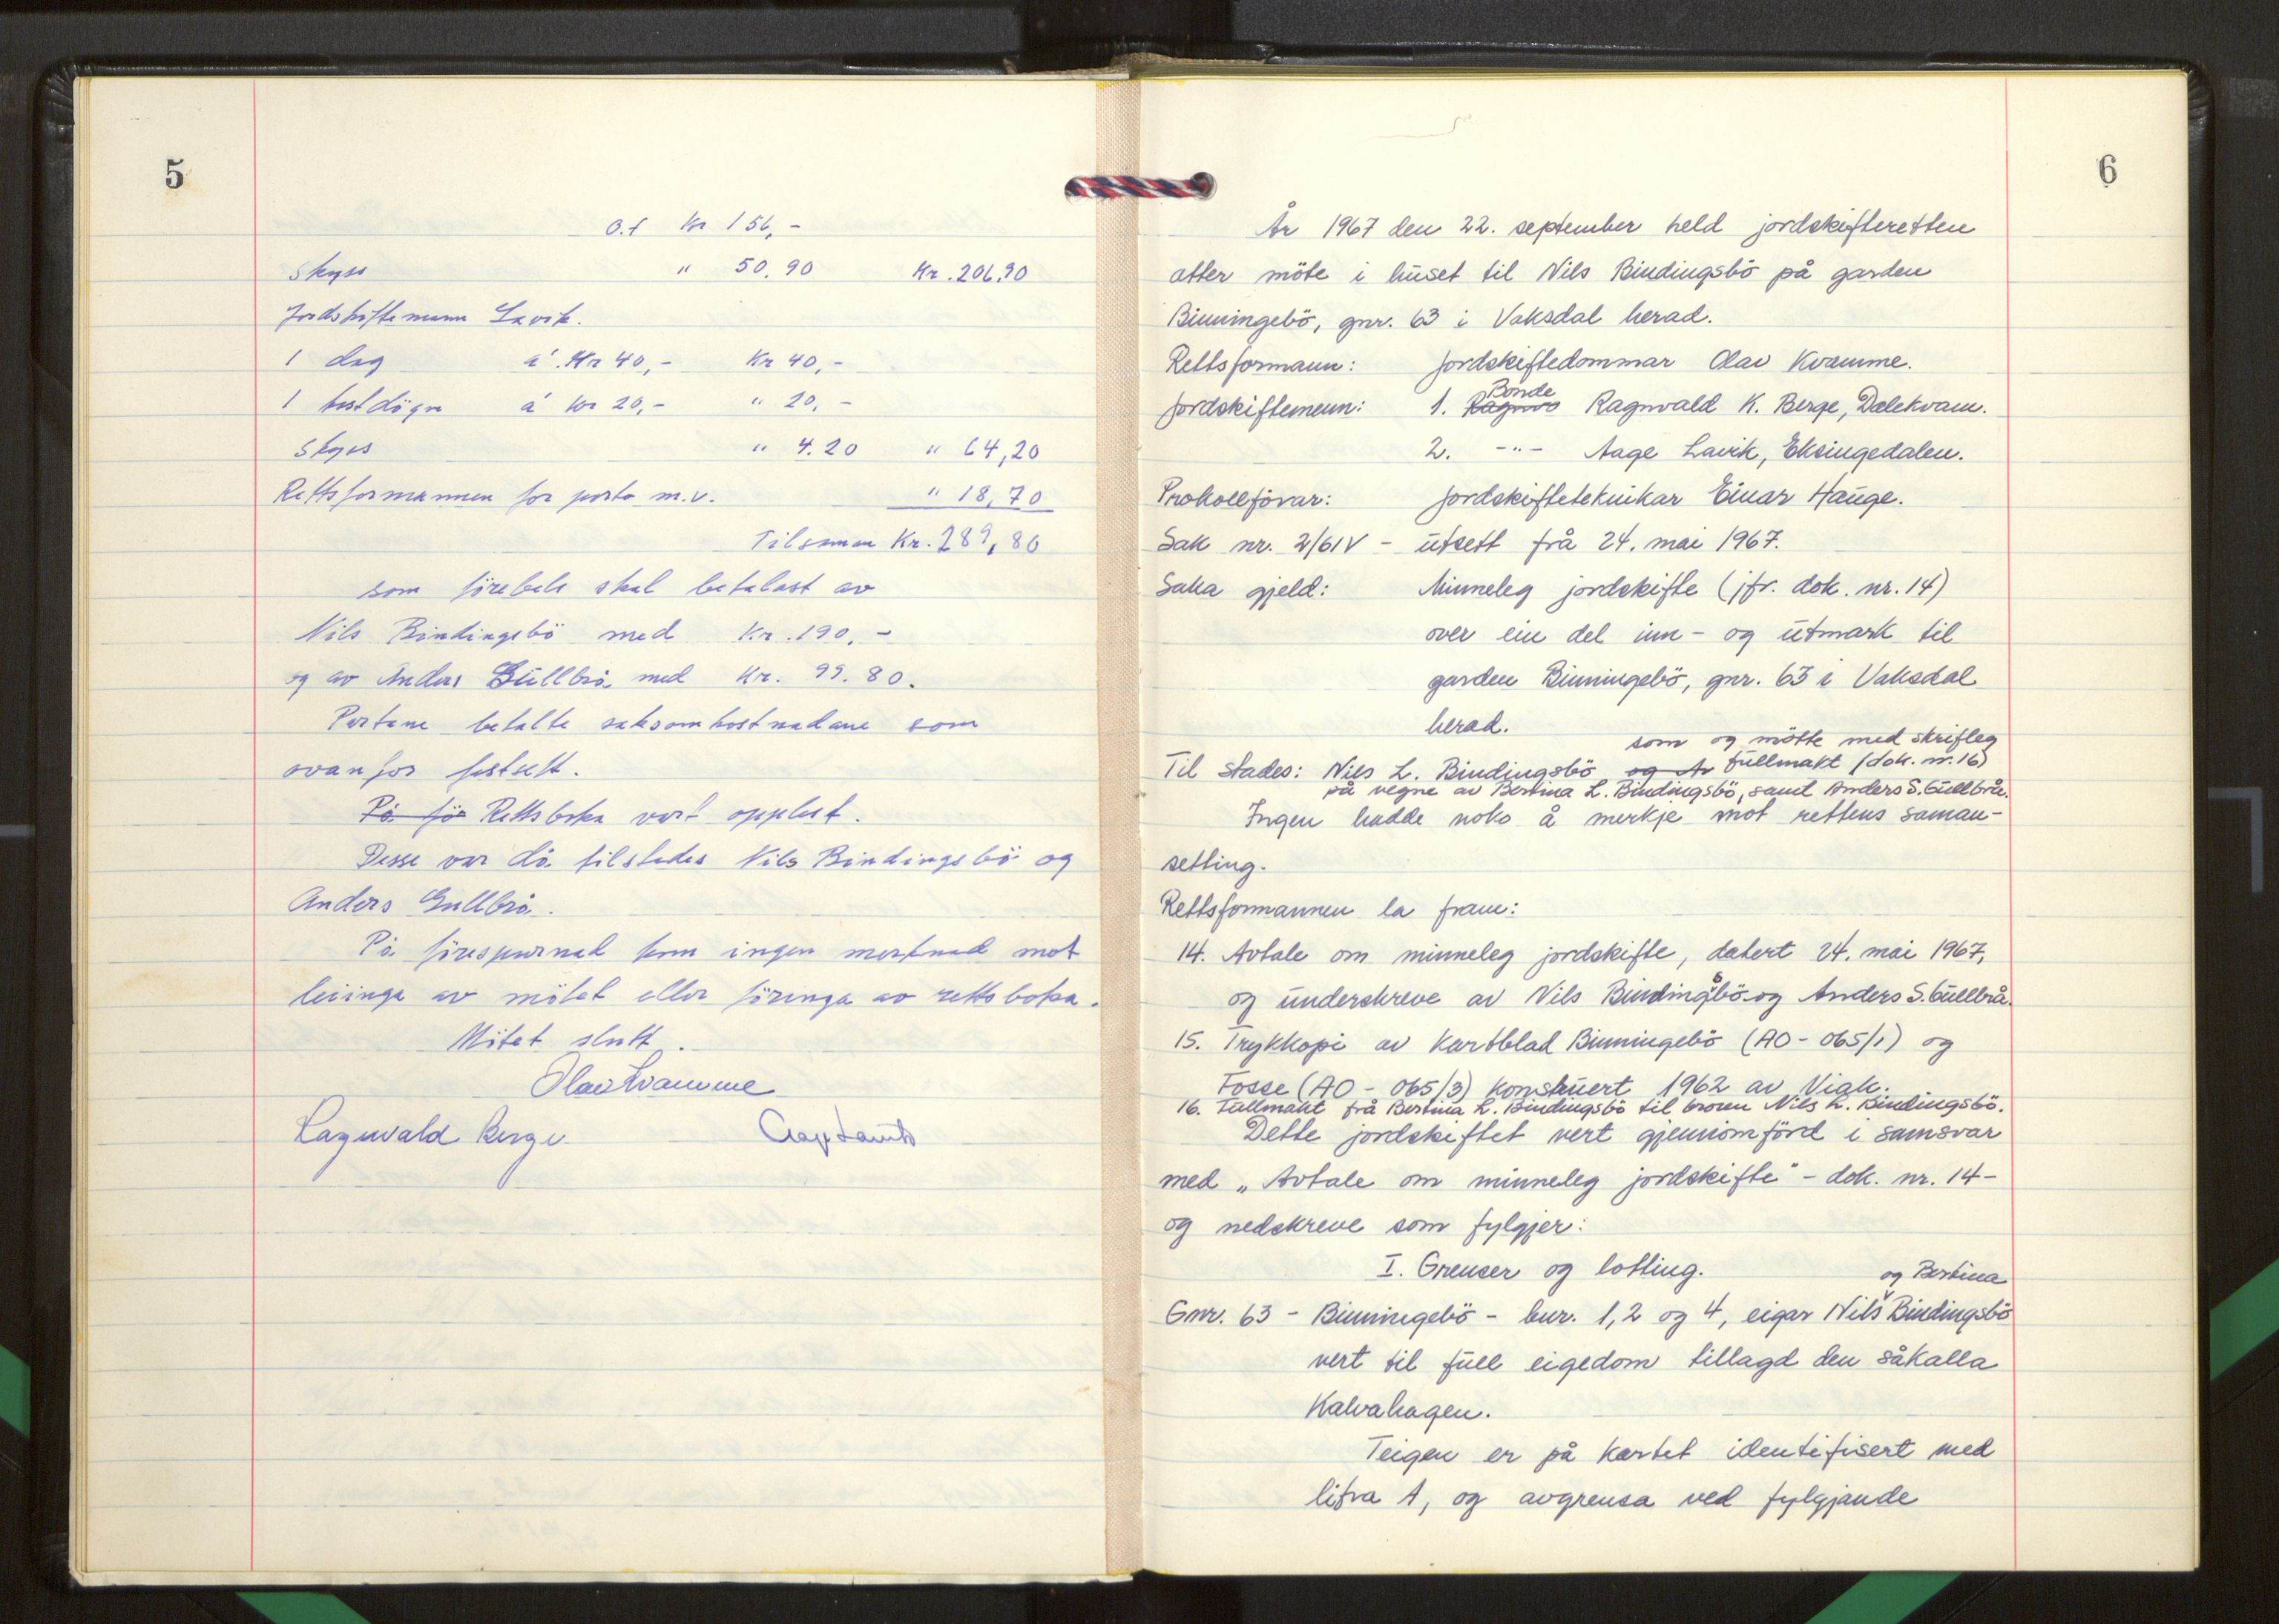 5
O.f Kr 156,-
Skyss " 50.90 Kr. 206.90
Jordskiftemann Lavik.
1 dag á Kr 40,- Kr 40,-
1 kostdögn á kr 20,- " 20,-
Skyss " 4.20 " 64,20
Rettsformannen for porto m.v. " 18,70
Tilsaman Kr. 289,80
som förebels skal betalast av
Nils Bindingsbö med Kr. 190,-
og av Anders Gullbrå med Kr. 99.80.
Partane betalte saksomkostnadane som
ovanfor fastsett.
På fö Rettsboka vart opplest.
Desse var då tilstades Nils Bindingsbö og
Anders Gullbrå.
På förespurnad kom ingen merknad mot
leiinga av mötet eller föringa av rettsboka.
Mötet slutt.
Olav Kvamme
Ragnvald Berge Aage Lavik
6
År 1967 den 22. september held jordskifteretten
atter möte i huset til Nils Bindingsbö på garden
Binningebö, gnr. 63 i Vaksdal herad.
Rettsformann: Jordskiftedommar Olav Kvamme.
Bonde
Jordskiftemenn: 1. Ragnvo Ragnvald K. Berge, Dalekvam.
2. -"- Aage Lavik, Eksingedalen.
Prokollförar: Jordskifteteknikar Einar Hauge.
Sak nr. 2/61V - utsett frå 24. mai 1967.
Saka gjeld: Minneleg jordskifte (jfr. dok. nr. 14)
over ein del inn- og utmark til
garden Binningebö, gnr. 63 i Vaksdal
herad.
som og mötte med skrifleg
Til stades: Nils L. Bindingsbö og A fullmakt (dok. nr. 16)
på vegne av Bertina L. Bindingsbö, samt Anders S. Gullbrå.
Ingen hadde noko å merkje mot rettens saman-
setting.
Rettsformannen la fram:
14. Avtale om minneleg jordskifte, datert 24. mai 1967,
og underskreve av Nils Bindingsbö og Anders S. Gullbrå.
15. Trykkopi av kartblad Binningebö (AO-065/1) og
Fosse (AO-065/3) konstruert 1962 av Viak.
16. Fullmakt frå Bertina L. Bindingsbö til broren Nils L. Bindingsbö.
Dette jordskiftet vert gjennomförd i samsvar
med „Avtale om minneleg jordskifte" - dok. nr. 14 -
og nedskreve som fylgjer:
I. Grenser og lotting.
og Bertina
Gnr. 63 - Binningebö - bnr. 1, 2 og 4, eigar Nils Bindingsbö
vert til full eigedom tillagd den såkalla
Kalvahagen.
Teigen er på kartet identifisert med
litra A, og avgrensa ved fylgjande